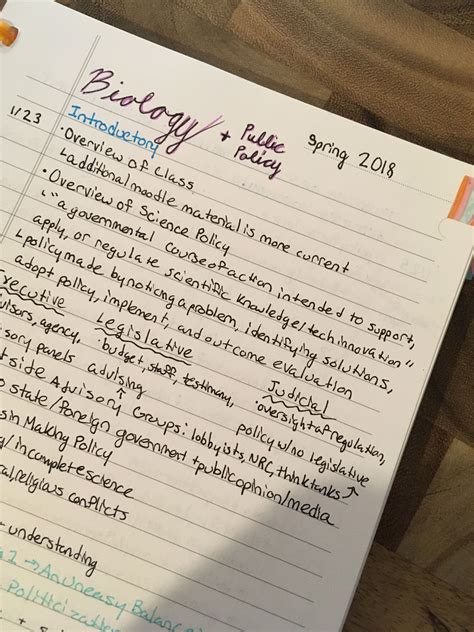 Biology + Public Policy
Spring 2018
1/23
Introductory
• Overview of class
↳ additional moodle material is more current
• Overview of Science Policy
↳ "a governmental course of action intended to support,
apply, or regulate scientific knowledge/tech innovation"
↳ policy made by noticing a problem, identifying solutions,
adopt policy, implement, and outcome evaluation
Executive Legislative Judicial
agency, budget, staff, testimony, oversight of regulation,
panels advising policy w/no legislative
Advisory Groups: lobbyists, NRC, think tanks
state/foreign government + public opinion/media
in Making Policy
incomplete science
religious conflicts
+ understanding
→ An Uneasy Balance